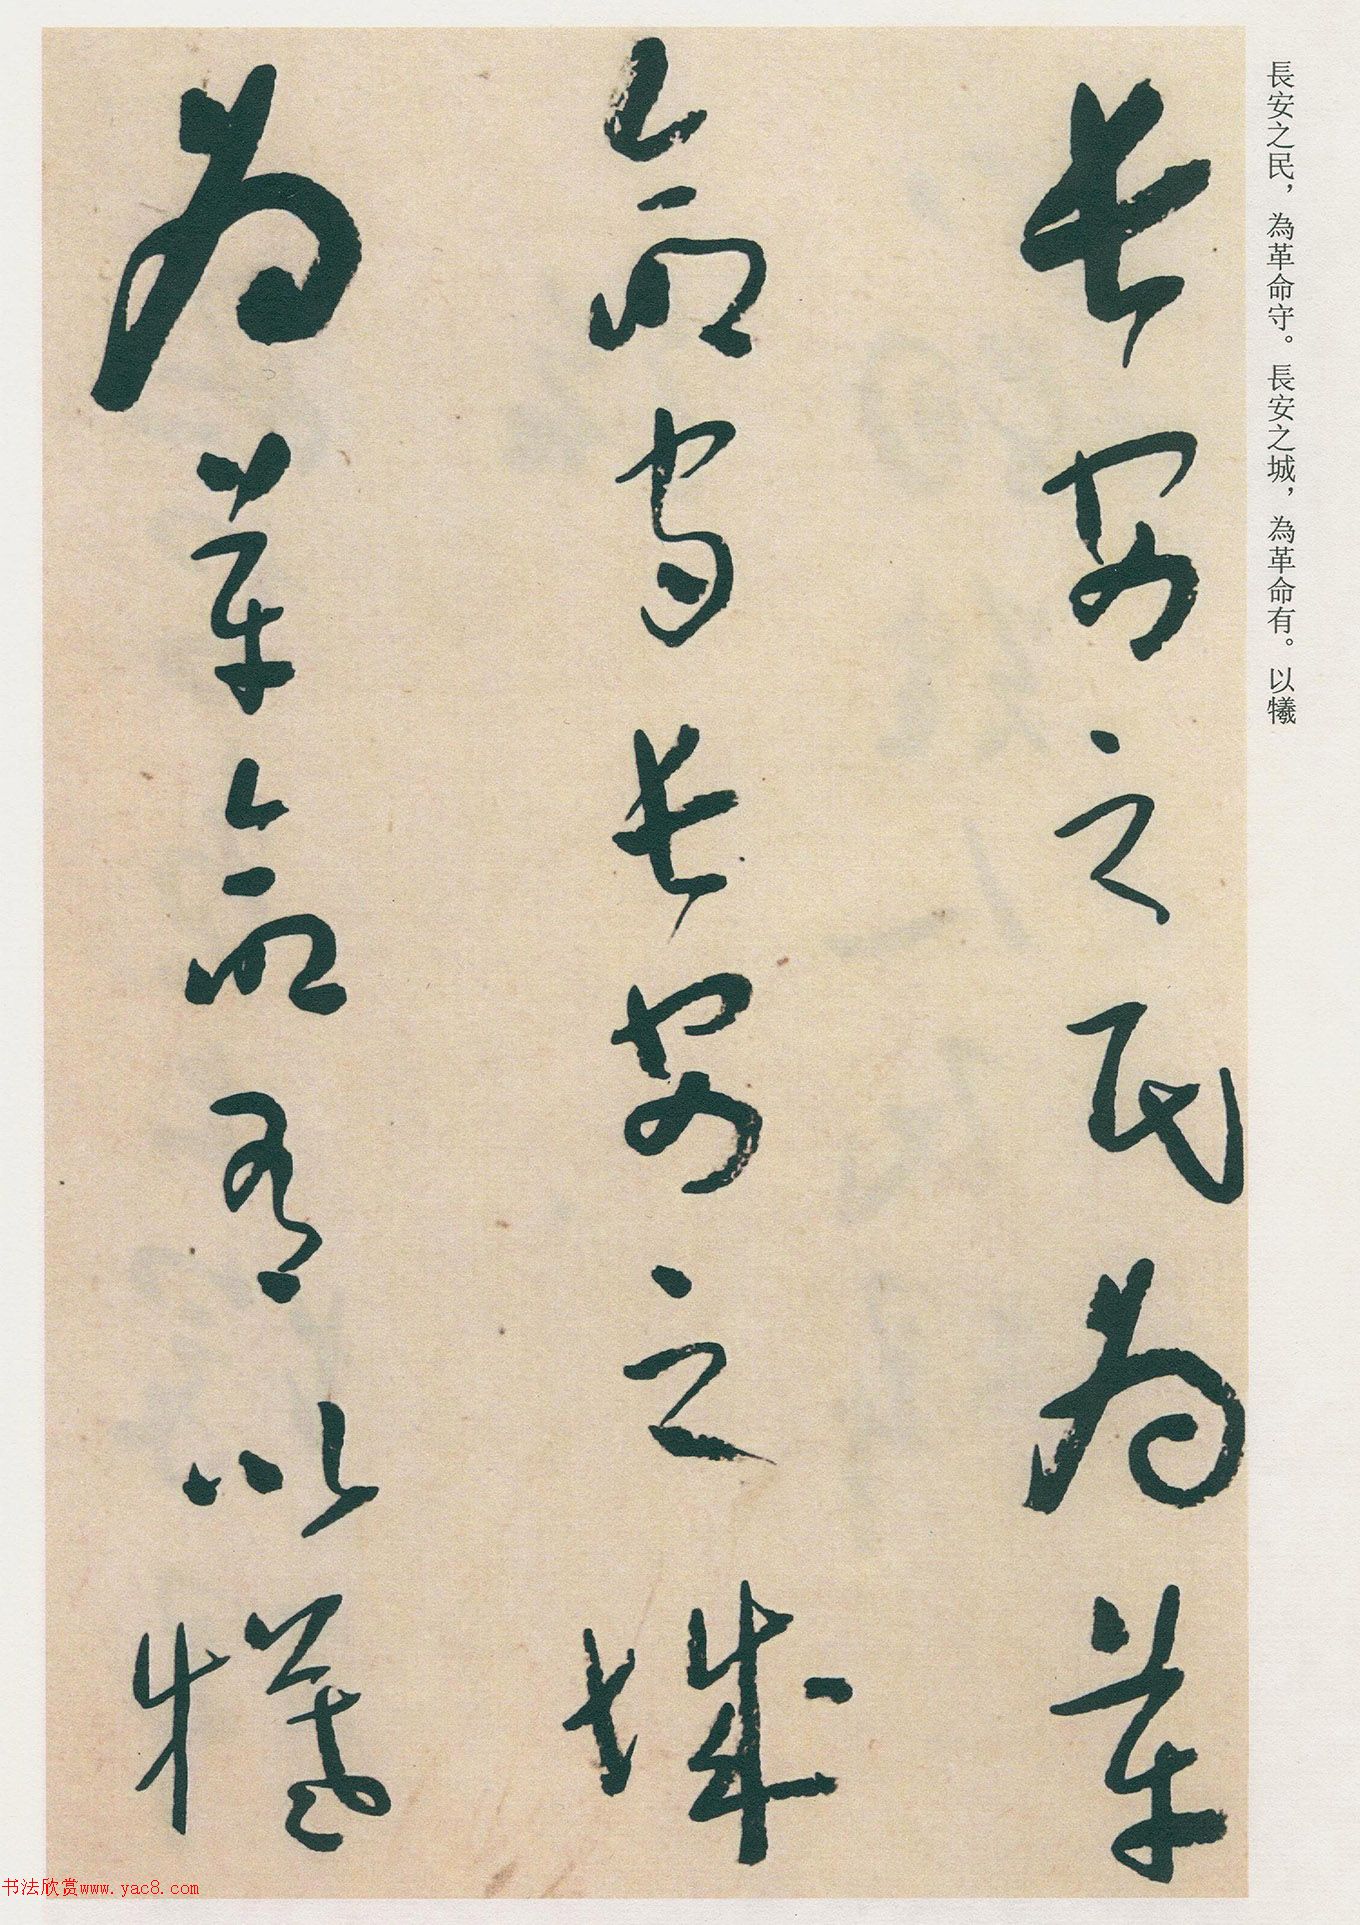 長安之民，為革命守。長安之城，為革命有。以犧
長安之民為革
命守長安之城
為革命有以犧
书法欣赏www.yac8.com